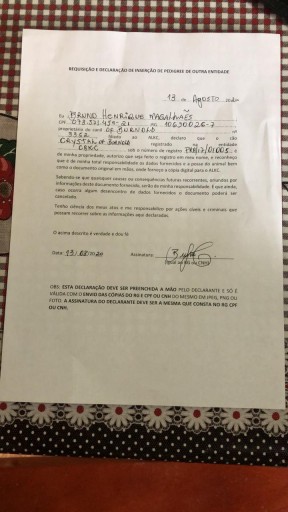 REQUISIÇÃO E DECLARAÇÃO DE INSERÇÃO DE PEDIGREE DE OUTRA ENTIDADE
13 de AGOSTO
Eu BRUNO HENRIQUE MAGALHÃES
proprietário do canil DE BURNOLD nº
3362 filiado ao ALKC, declaro que o cão
CRYSTAL OF BURNOLD registrado na entidade
sob o número de registro
de minha propriedade, autorizo que seja feito o registro em meu nome, e reconheço
que é de minha total responsabilidade os dados fornecidos e a posse do animal bem
como o documento original em mãos, onde forneço a cópia digital para o ALKC.
Sabendo-se que quaisquer causas ou consequências futuras recorrentes, oriundas por
informações deste documento fornecido, serão de minha responsabilidade. E que ainda,
caso ocorra algum desencontro de dados fornecidos o documento poderá ser
cancelado.
Tenho ciência dos meus atos e me responsabilizo por ações cíveis e criminais que
possam recorrer sobre as informações aqui declaradas.
O acima descrito é verdade e dou fé.
Data: 13/08/2024 Assinatura:
(Igual ao RG ou CNH)
OBS: ESTA DECLARAÇÃO DEVE SER PREENCHIDA A MÃO PELO DECLARANTE E SÓ É
VÁLIDA COM O ENVIO DAS CÓPIAS DO RG E CPF OU CNH DO MESMO EM JPEG, PNG OU
FOTO. A ASSINATURA DO DECLARANTE DEVE SER A MESMA QUE CONSTA NO RG CPF
OU CNH.